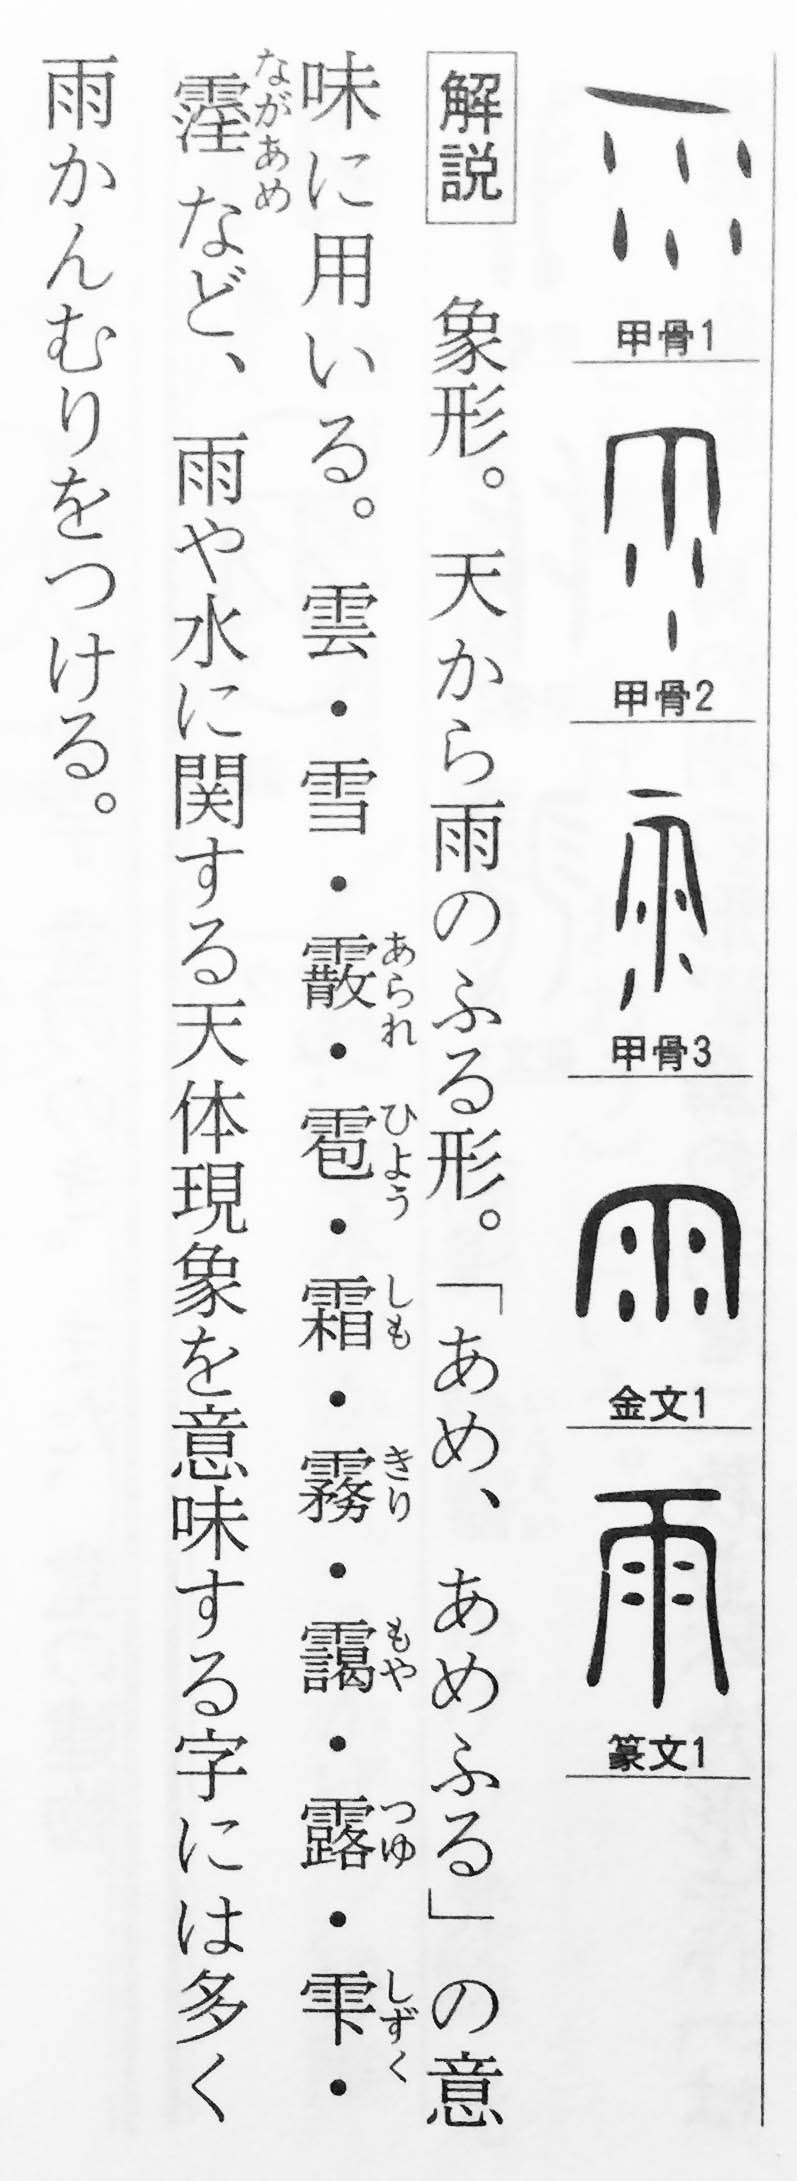 甲骨1
甲骨2
甲骨3
金文1
篆文1
解説 象形。天から雨のふる形。「あめ、あめふる」の意
あられ ひよう しも きり もや つゆ しずく
味に用いる。雲・雪・霰・雹・霜・霧・靄・露・雫・
ながあめ
霪など、雨や水に関する天体現象を意味する字には多く
雨かんむりをつける。